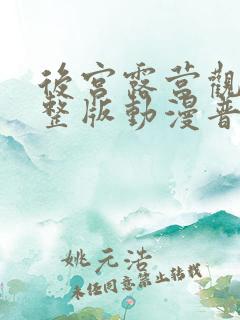 後宮露營觀
整版動漫普
姚元浩
未任同意禁止转载